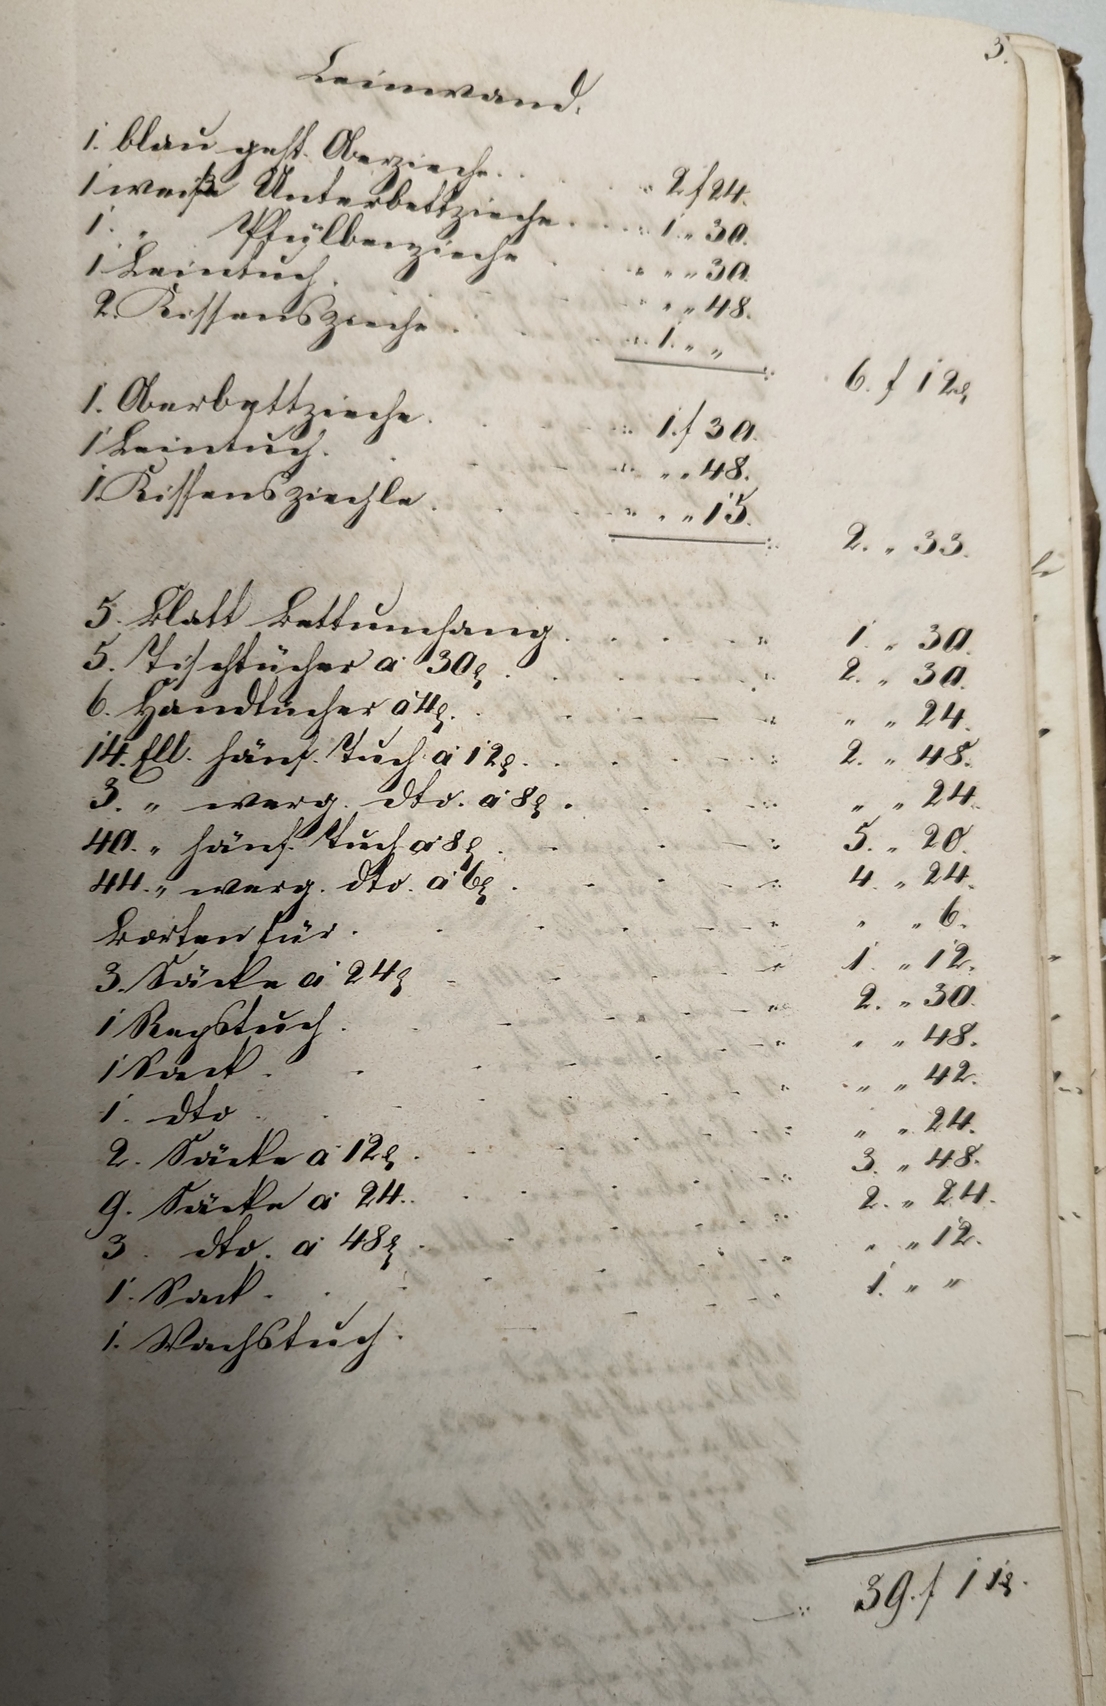 3.
Leinwand.
1. blau gest. Oberzieche . . . . 2 f 24.
1 weiße Unterbettzieche . . . 1. „ 30.
1. „ Pfülbenzieche . . . „ „ 30.
1 Leintuch . . . „ „ 48.
2. Kissenszieche . . . 1. „ „
6. f 12 x
1. Oberbettzieche . . . 1. f 30.
1 Leintuch . . . „ „ 48.
1. Kissensziechle . . . „ „ 15.
2. „ 33.
5. Blatt Bettumhang . . . . . 1. „ 30.
5. Tischtücher a 30 x . . . . 2. „ 30.
6. Handtücher a 4 x . . . . „ „ 24.
14. Ell. hänf. Tuch a 12 x . . . . 2. „ 48.
3. „ werg. dto. a 8 x . . . . „ „ 24.
40. „ hänf. Tuch a 8 x . . . . 5. „ 20.
44. „ werg. dto. a 6 x . . . . 4. „ 24.
Borten für . . . . „ „ 6.
3. Säcke a 24 x . . . . 1. „ 12.
1 Repstuch . . . . 2. „ 30.
1 Sack . . . . „ „ 48.
1. dto . . . . „ „ 42.
2. Säcke a 12 x . . . . „ „ 24.
9. Säcke a 24. . . . . 3. „ 48.
3. dto. a 48 x . . . . 2. „ 24.
1. Sack . . . . „ „ 12.
1. Wachstuch . . . . 1. „ „
39. f 11 x.